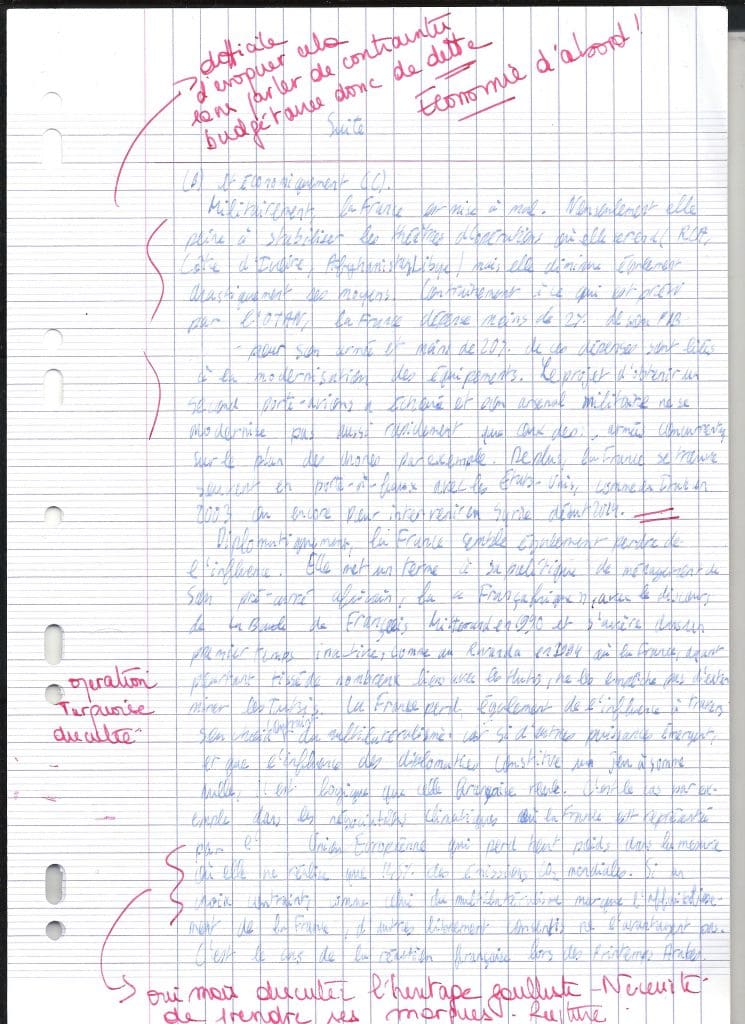 difficile
d'évoquer cela
sans parler de contraintes
budgétaires donc de dette
Économie d'abord !
Suite
(B) et Économiquement (C).
Militairement, la France est mise à mal. Non seulement elle
peine à stabiliser les théâtres d'opérations où elle se rend (RCA,
Côte d'Ivoire, Afghanistan, Libye) mais elle diminue également
drastiquement ses moyens. Contrairement à ce qui est prévu
par l'OTAN, la France dépense moins de 2% de son PIB
pour son armée et moins de 20% de ces dépenses sont liées
à la modernisation des équipements. Le projet d'obtenir un
second porte-avions a échoué et son arsenal militaire ne se
modernise pas aussi rapidement que ceux des armées concurrentes
sur le plan des drones par exemple. De plus, la France se trouve
souvent en porte-à-faux avec les États-Unis, comme en Irak en
2003 ou encore pour intervenir en Syrie début 2014.
Diplomatiquement, la France semble également perdre de
l'influence. Elle met un terme à sa politique de ménagement de
son pré-carré africain, la « Françafrique », avec le discours
de la Baule de François Mitterrand en 1990 et s'avère dans un
premier temps inactive, comme au Rwanda en 1994 où la France, ayant
pourtant tissé de nombreux liens avec les Hutus, ne les empêche pas d'exter
miner les Tutsis. La France perd également de l'influence à travers
son choix contraint du multilatéralisme car si d'autres puissances émergent,
et que l'influence des diplomaties constitue un jeu à somme
nulle, il est logique que celle française recule. C'est le cas par ex-
emple dans les négociations climatiques où la France est représentée
par l' Union Européenne qui perd tout poids dans la mesure
où elle ne réalise que des émissions mondiales. Si un
choix contraint, comme celui du multilatéralisme marque l'affaiblisse-
ment de la France, d'autres librement consentis ne l'avantagent pas.
C'est le cas de la réaction française lors des Printemps Arabes.
opération
Turquoise
discutée
oui mais discutez l'héritage gaulliste - Nécessité
de prendre ses marques.